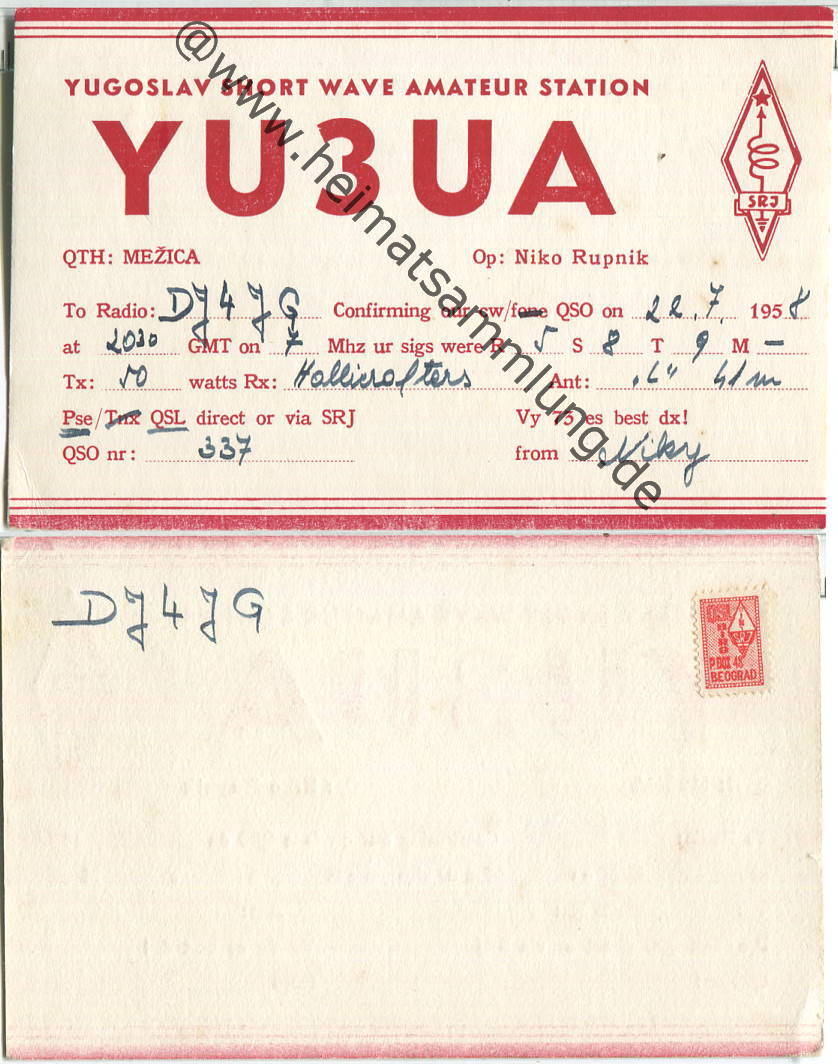 YUGOSLAV SHORT WAVE AMATEUR STATION
YU3UA
SRJ
QTH: MEŽICA Op: Niko Rupnik
To Radio: DJ4JG Confirming our cw/fone QSO on 22.7. 1958
at 2030 GMT on 7 Mhz ur sigs were R 5 S 8 T 9 M –
Tx: 50 watts Rx: Hallicrafters Ant: "L" 41 m
Pse/Tnx QSL direct or via SRJ Vy 73 es best dx!
QSO nr: 337 from Niky
@www.heimatsammlung.de
DJ4JG
QSL
BIRO
SRJ
P.BOX 48
BEOGRAD